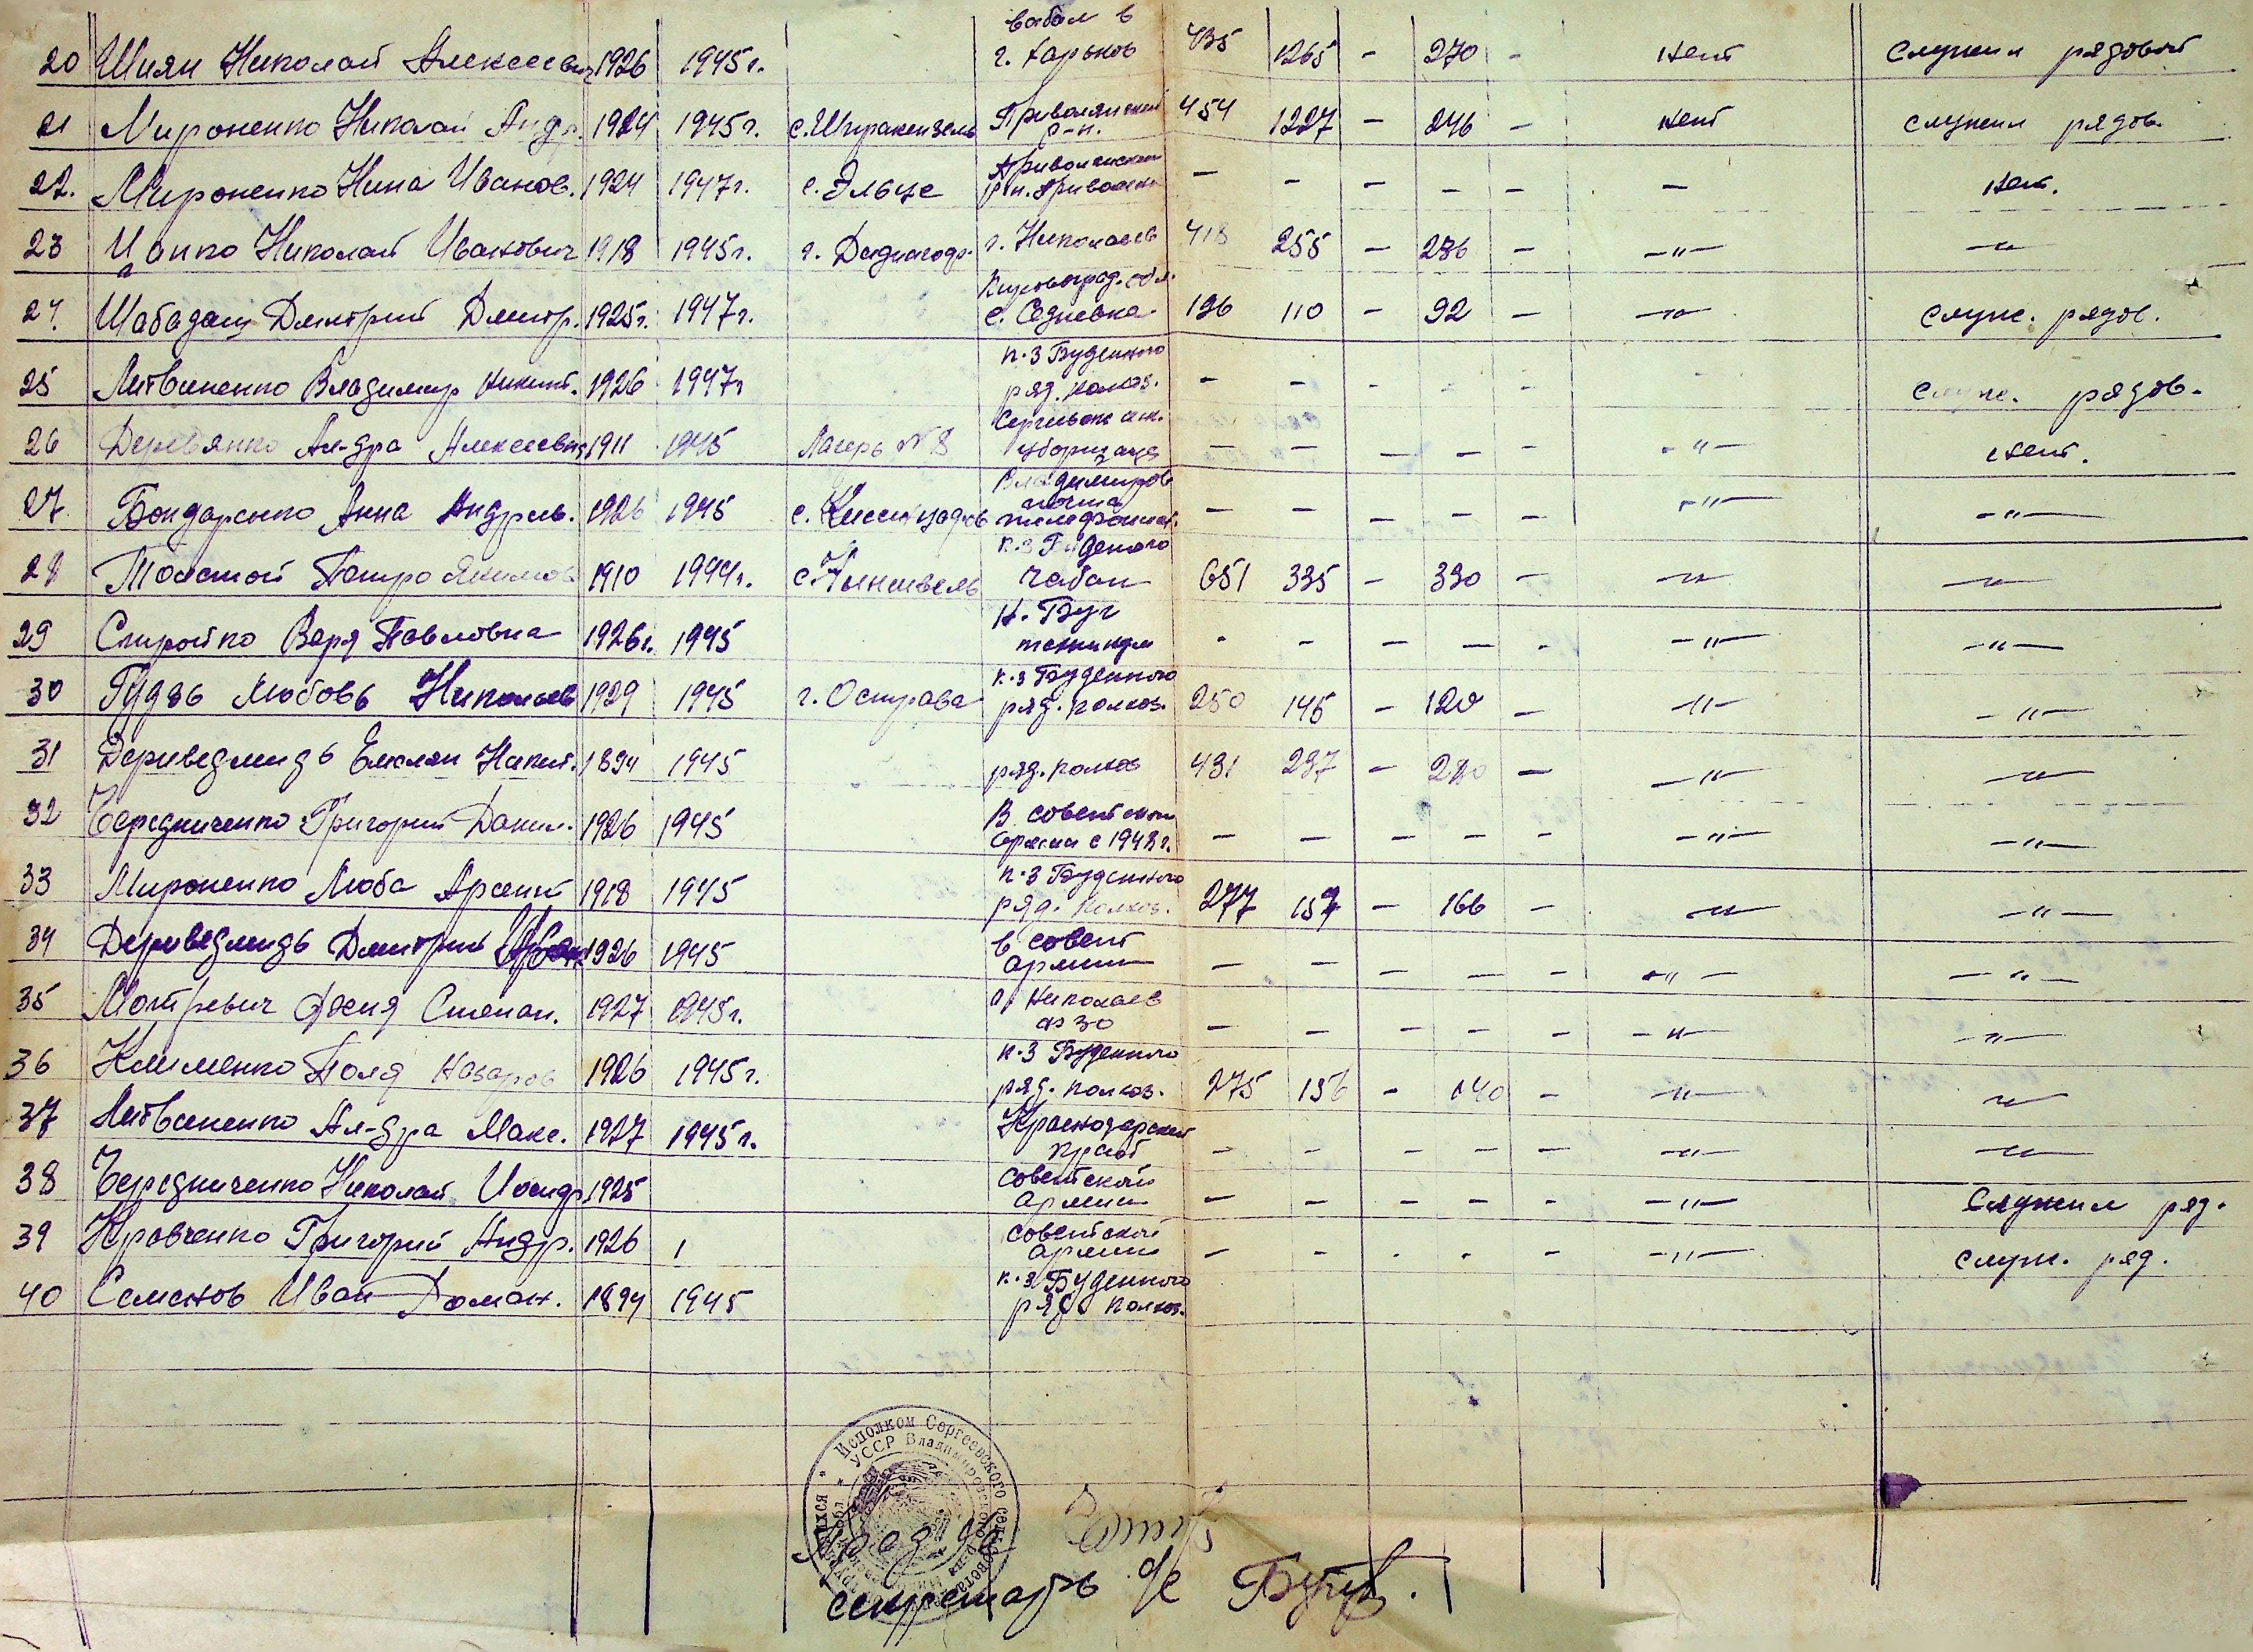 20 Шиян Николай Алексеевич 1926 1945г. выбыл в г. Харьков 435 1265 - 270 - нет служил рядовой
21 Мироненко Николай Андр. 1924 1945г. Приволянский р-н. 454 1227 - 246 - нет служил рядов.
22. Мироненко Нина Иванов. 1924 1947г. с. Эльце - - - - - - нет.
23 Цапко Николай Иванович 1918 1945г. г. Николаев 418 255 - 236 - -"- -"-
24. Шабадаш Дмитрий Дмитр. 1925г. 1947г. Кировоград. обл. с. Седневка 196 110 - 92 - -"- служ. рядов.
25 Литвиненко Владимир Никит. 1926 1947г к-з Буденного ряд. колхоз. - - - - - - служ. рядов.
26 Деревянко Ал-дра Алексеевна 1911 1945 Лагерь №8 уборщица - - - - - -"- нет.
27 Бондаренко Анна Андреев. 1926 1945 Владимиров почта телефонист. - - - - - -"- -"-
28 Толстой Петро Якимов 1910 1944г. к-з Буденого чабан 651 335 - 330 - -"- -"-
29 Спиройко Варя Павловна 1926г. 1945 Н-Буг техникум - - - - - -"- -"-
30 Гудзь Любовь Николаев 1929 1945 г. Острава к-з Буденного ряд. колхоз. 250 145 - 120 - -"- -"-
31 Дериведмидь Емелян Никит. 1894 1945 ряд. колхоз 431 237 - 210 - -"- -"-
32 Чередниченко Григорий Данил. 1926 1945 В советской армии с 1943г. - - - - - -"- -"-
33 Мироненко Люба Арсент 1918 1945 к-з Буденного ряд. колхоз. 277 157 - 166 - -"- -"-
34 Дериведмидь Дмитрий 1926 1945 в совет армии - - - - - -"- -"-
35 Мотревич Феня Степан. 1927 1945г. г. Николаев - - - - - -"- -"-
36 Клименко Поля Назаров 1926 1945г. к-з Буденного ряд. колхоз. 275 156 - 140 - -"- -"-
37 Литвиненко Ал-дра Макс. 1927 1945г. Краснодарский край - - - - - -"- -"-
38 Чередниченко Николай 1925 Советской армии - - - - - -"- Служил ряд.
39 Кравченко Григорий Андр. 1926 советской армии - - - - - -"- служ. ряд.
40 Семенов Иван Доман. 1894 1945 к-з Буденного ряд колхоз.
Исполком Сергеевского сельсовета
УССР Владимировского р-на
Пред с/с
секретарь с/с